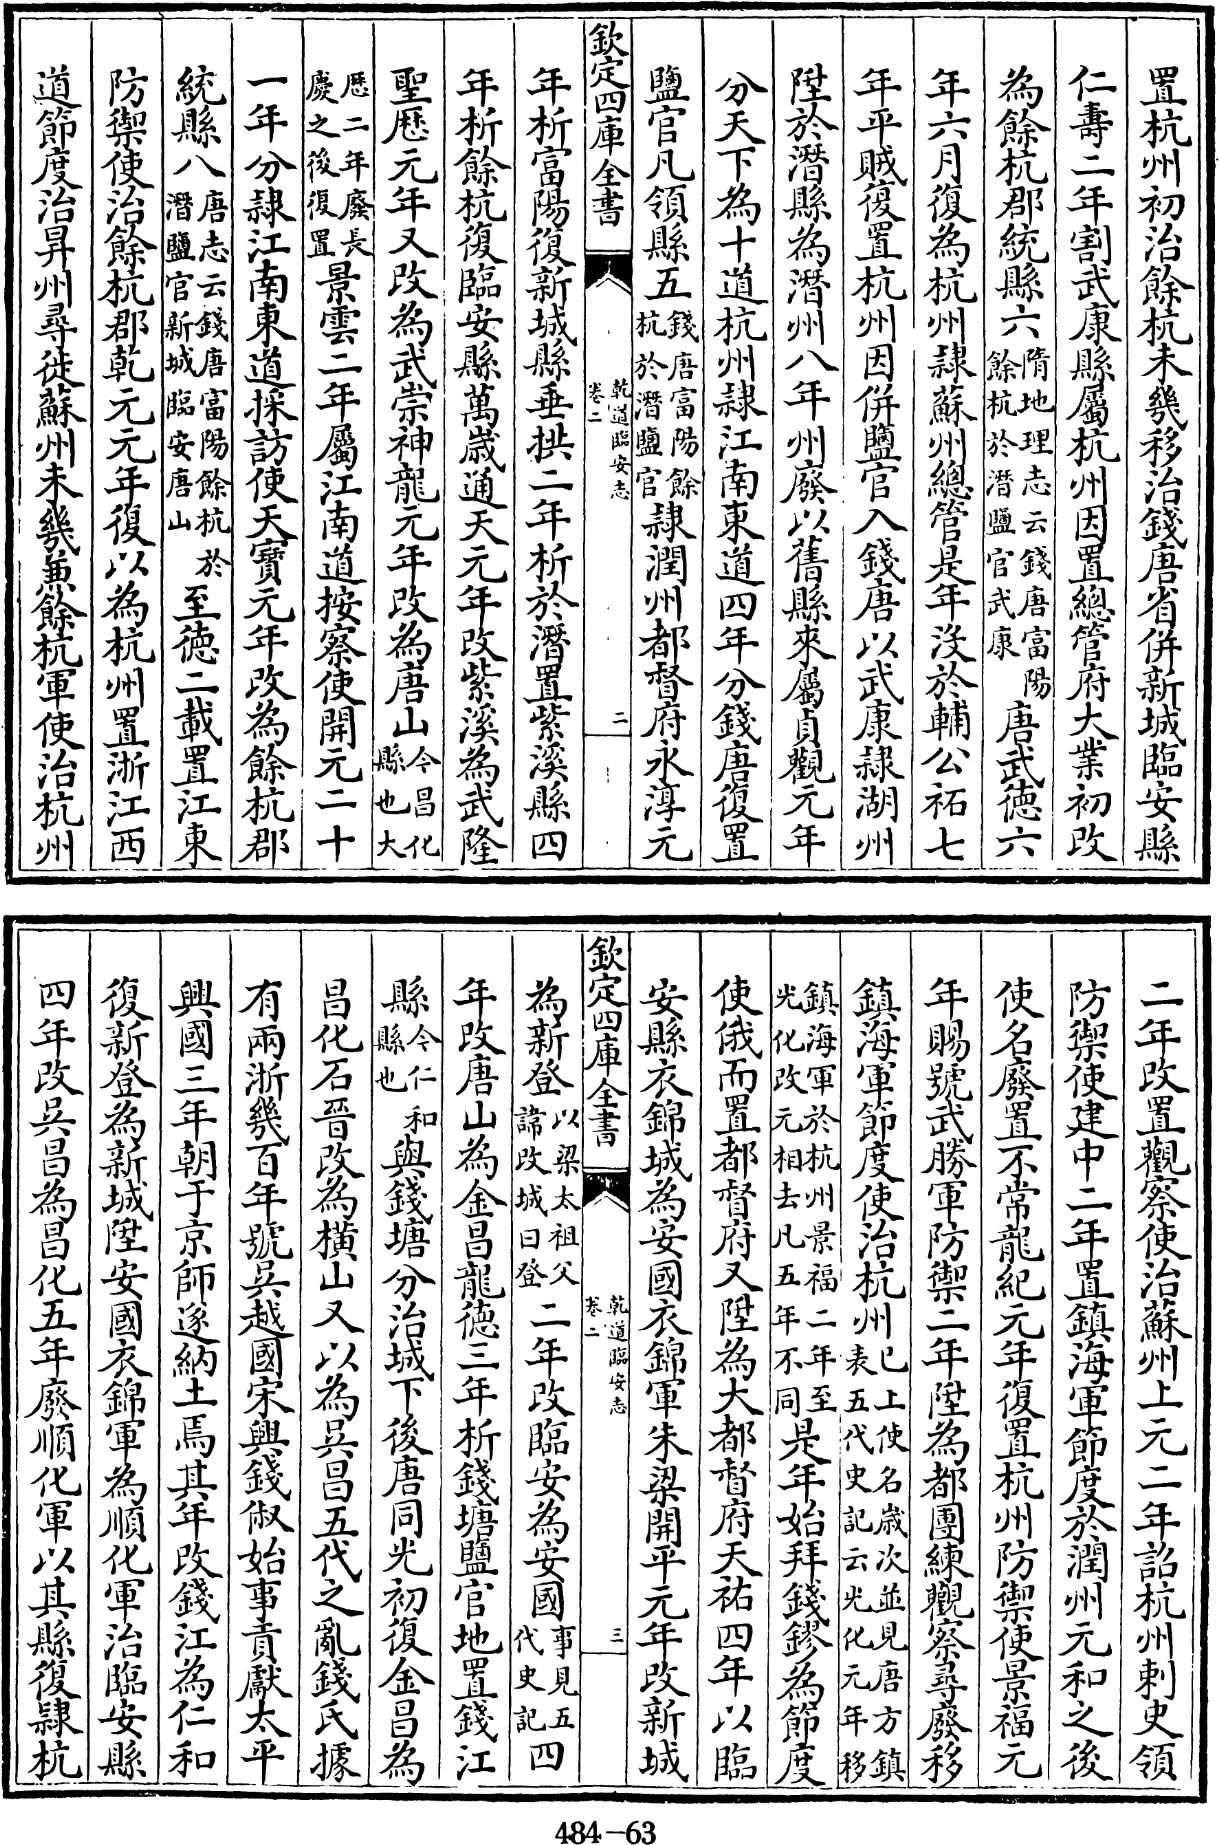 置杭州初治餘杭未幾移治錢唐省併新城臨安縣
仁壽二年割武康縣屬杭州因置總管府大業初改
為餘杭郡統縣六隋地理志云錢唐富陽餘杭於潛鹽官武康唐武德六
年六月復為杭州隷蘇州總管是年沒於輔公祏七
年平賊復置杭州因併鹽官入錢唐以武康隷湖州
陞於潛縣為潛州八年州廢以舊縣來屬貞觀元年
分天下為十道杭州隷江南東道四年分錢唐復置
鹽官凡領縣五錢唐富陽餘杭於潛鹽官隷潤州都督府永淳元
欽定四庫全書
乾道臨安志
卷二
二
年析富陽復新城縣垂拱二年析於潛置紫溪縣四
年析餘杭復臨安縣萬歲通天元年改紫溪為武隆
聖厯元年又改為武崇神龍元年改為唐山今昌化縣也大
厯二年廢長慶之後復置景雲二年屬江南道按察使開元二十
一年分隷江南東道採訪使天寶元年改為餘杭郡
統縣八唐志云錢唐富陽餘杭於潛鹽官新城臨安唐山至德二載置江東
防禦使治餘杭郡乾元元年復以為杭州置浙江西
道節度治昇州尋徙蘇州未幾兼餘杭軍使治杭州
二年改置觀察使治蘇州上元二年詔杭州刺史領
防禦使建中二年置鎮海軍節度於潤州元和之後
使名廢置不常龍紀元年復置杭州防禦使景福元
年賜號武勝軍防禦二年陞為都團練觀察尋廢移
鎮海軍節度使治杭州已上使名歲次並見唐方鎮表五代史記云光化元年移
鎮海軍於杭州景福二年至光化改元相去凡五年不同是年始拜錢鏐為節度
使俄而置都督府又陞為大都督府天祐四年以臨
安縣衣錦城為安國衣錦軍朱梁開平元年改新城
欽定四庫全書
乾道臨安志
卷二
三
為新登以梁太祖父諱改城曰登二年改臨安為安國事見五代史記四
年改唐山為金昌龍德三年析錢塘鹽官地置錢江
縣今仁和縣也與錢塘分治城下後唐同光初復金昌為
昌化石晉改為橫山又以為吳昌五代之亂錢氏據
有兩浙幾百年號吳越國宋興錢俶始事貢獻太平
興國三年朝于京師遂納土焉其年改錢江為仁和
復新登為新城陞安國衣錦軍為順化軍治臨安縣
四年改吳昌為昌化五年廢順化軍以其縣復隷杭
484-63